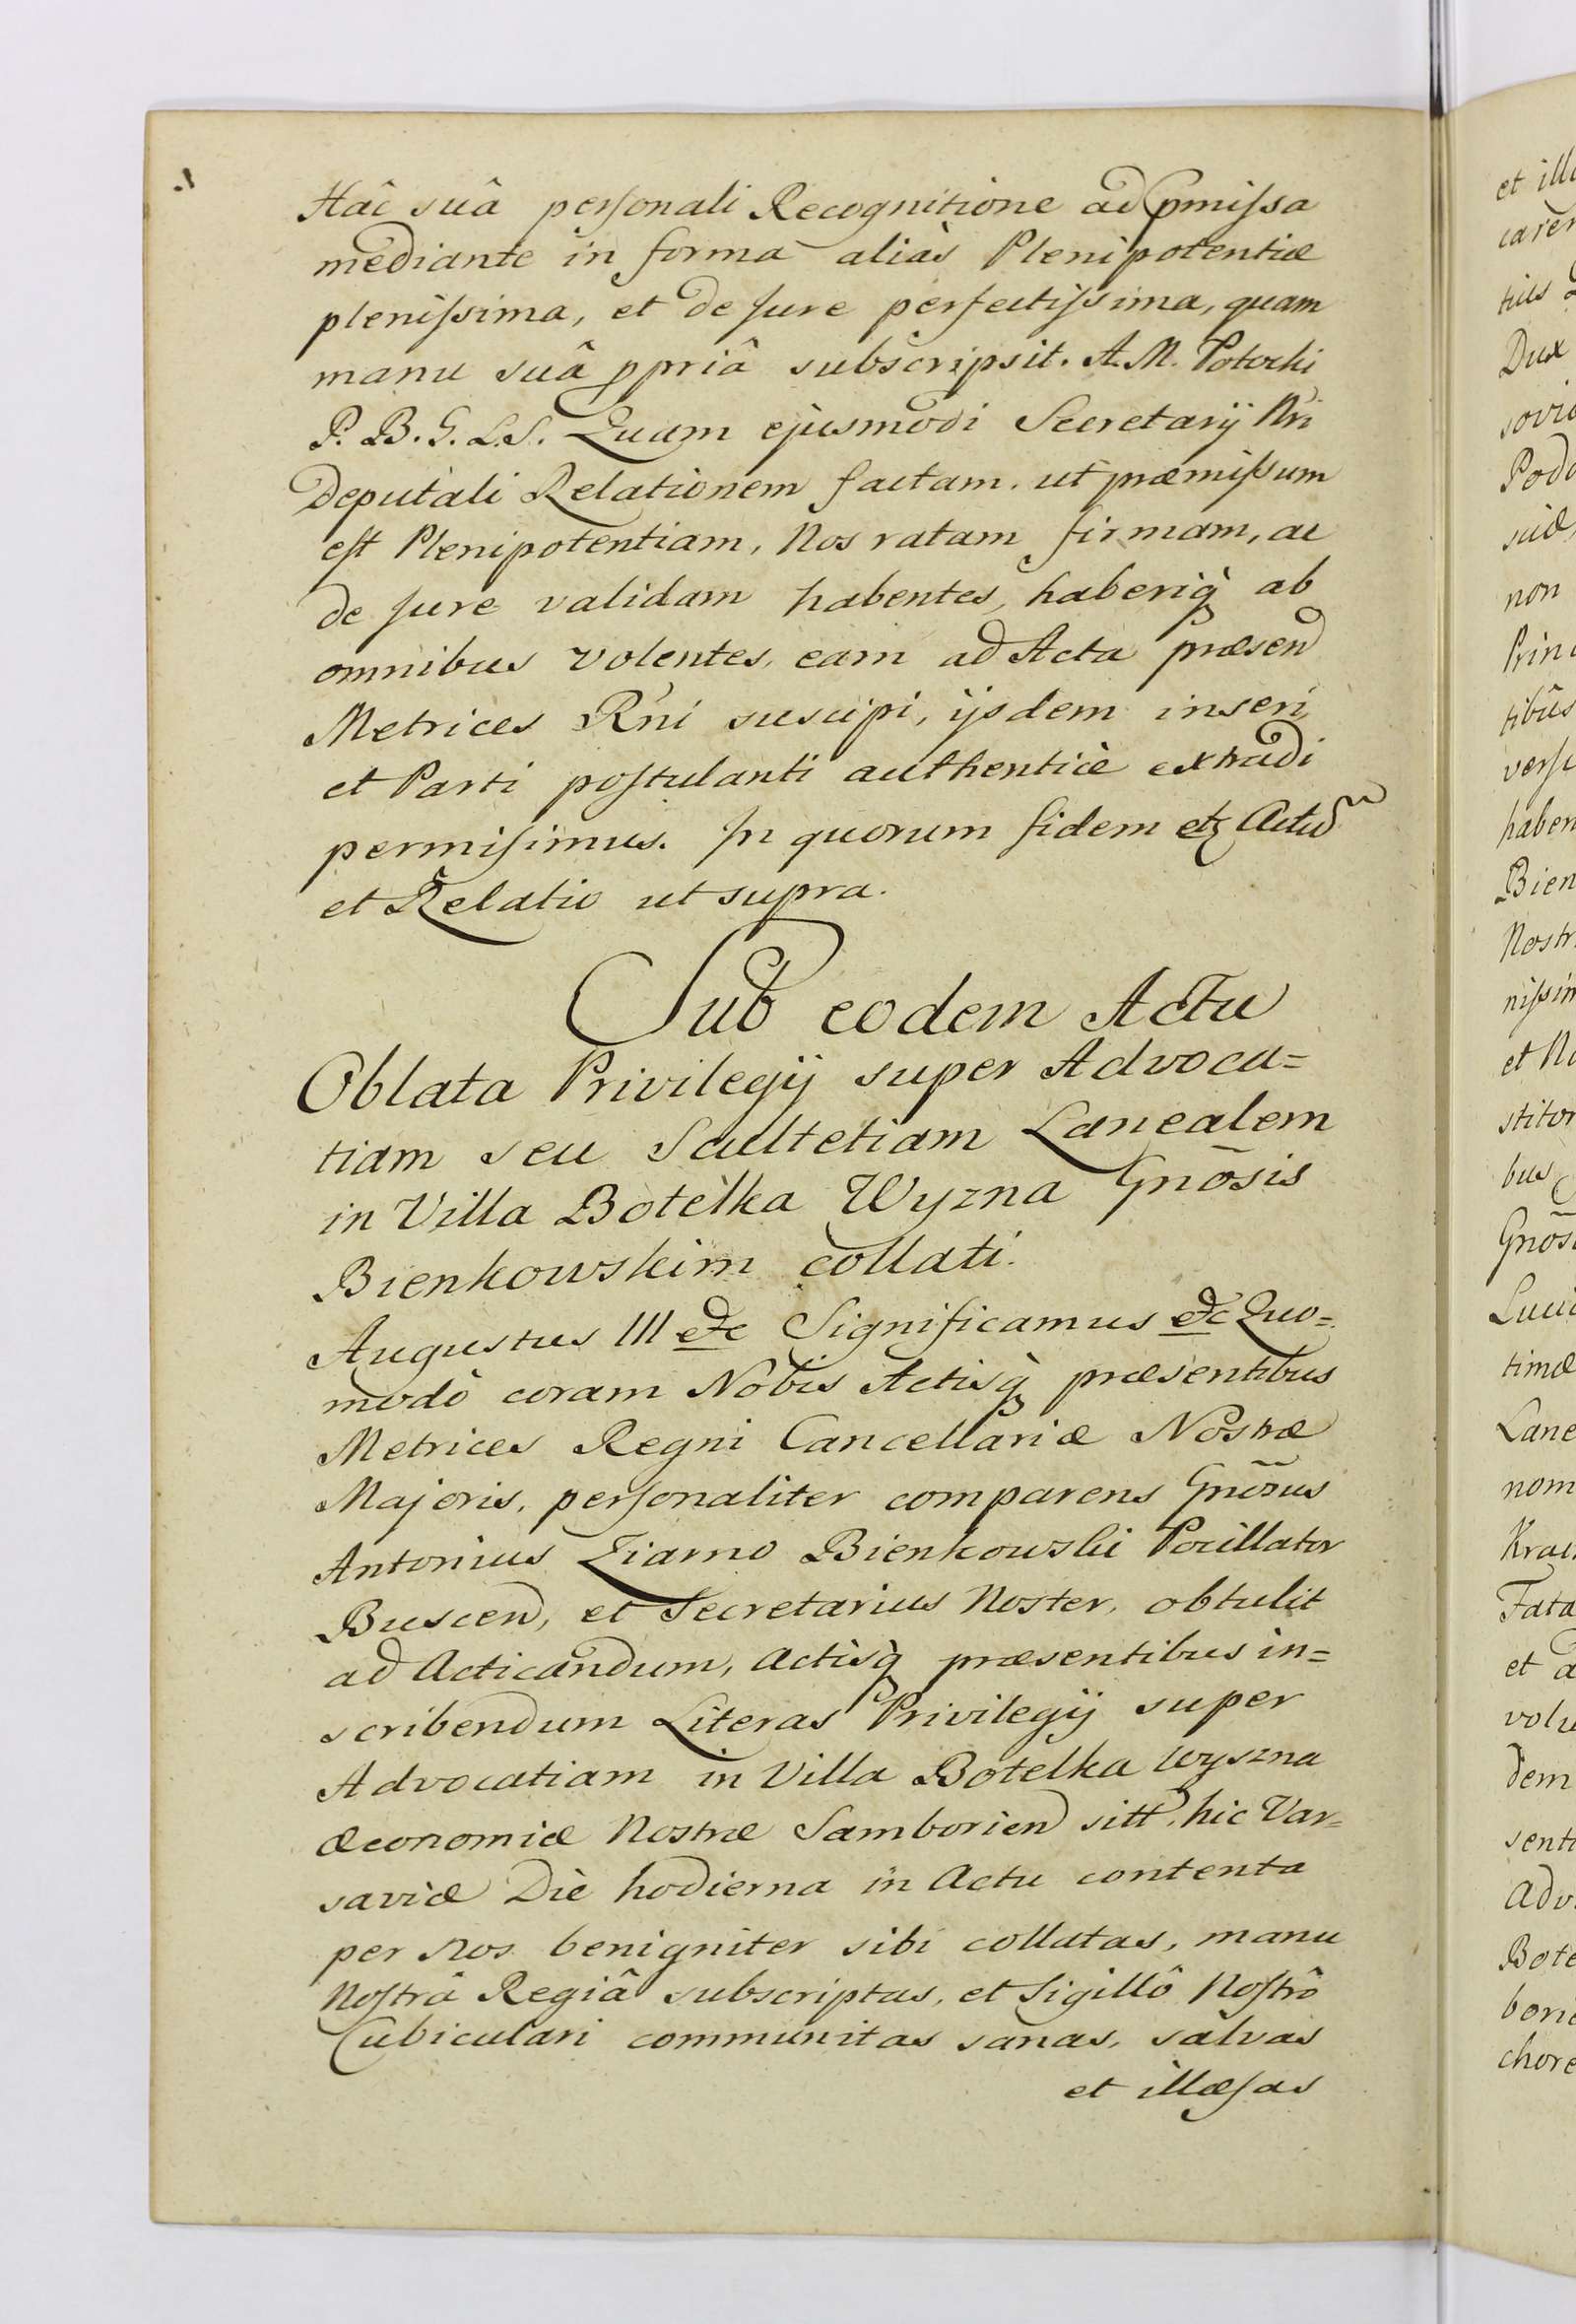 Hâc suâ personali Recognitione ad pmissa
mediante in forma aliàs Plenipotentiæ
plenissima, et de Jure perfectissima, quam
manu suâ ppriâ subscripsit. A. M. Potocki
P. B. G. L.S. Quam ejusmodi Secretarij Nri
deputati Relationem factam. ut præmissum
est Plenipotentiam, Nos ratam firmam, ac
de Jure validam habentes, haberiq̀ ab
omnibus volentes, eam ad Acta præsen
Metrices Rni suscipi, ijsdem inseri,
et Parti postulanti authenticè extradi
permisimus. In quorum fidem etz Actu
et Relatio ut supra.
Sub eodem Actu
Oblata Privilegij super Advoca=
tiam seu Scultetiam Lanealem
in Villa Botelka Wyzna Gnōsis
Bienkowskim collati.
Augustus III etc Significamus etc Quo=
modò coram Nobis Actisq̀ præsentibus
Metrices Regni Cancellariæ Nostræ
Majoris, personaliter comparens Gnōsus
Antonius Ziarno Bienkowski Pocillator
Buscen, et Secretarius Noster, obtulit
ad Acticandum, Actisq̀ præsentibus in=
scribendum Literas Privilegij super
Advocatiam in Villa Botelka Wyszna
œconomiæ Nostræ Samborien sitt, hic Var=
saviæ Diè hodierna in Actu contenta
per Nos benigniter sibi collatas, manu
Nostrâ Regiâ subscriptas, et Sigillô Nostrô
Cubiculari communitas sanas, salvas
et illæsas
et ill
carer
tius
Dux
sovi
Podo
siæ,
non
Prin
tibûs
versi
haben
Bien
Nostr
nissim
et No
stitor
bus
Gnōsi
Luci
timæ
Lane
nom
Krai
Fata
et a
volu
dem
senti
Adv
Bote
bori
chore